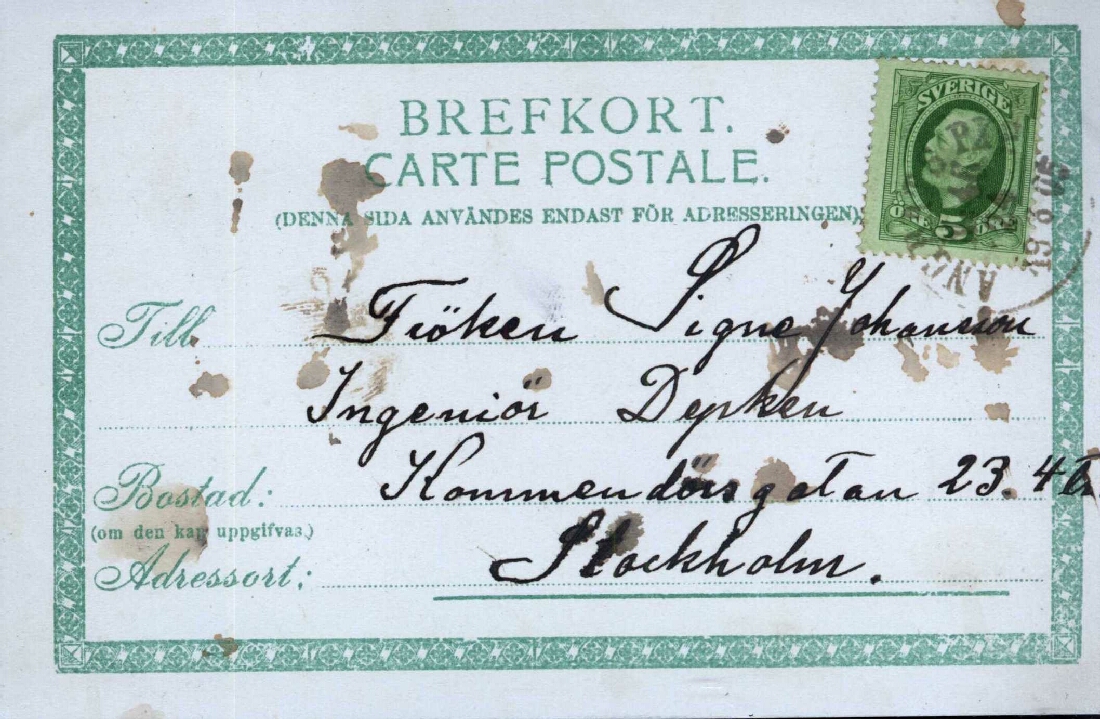 BREFKORT.
CARTE POSTALE.
(DENNA SIDA ANVÄNDES ENDAST FÖR ADRESSERINGEN)
SVERIGE
5
Till Fröken Signe Johansson
Ingeniör Depken
Bostad: Kommendörsgatan 23. 4 tr
(om den kan uppgifvas.)
Adressort: Stockholm.